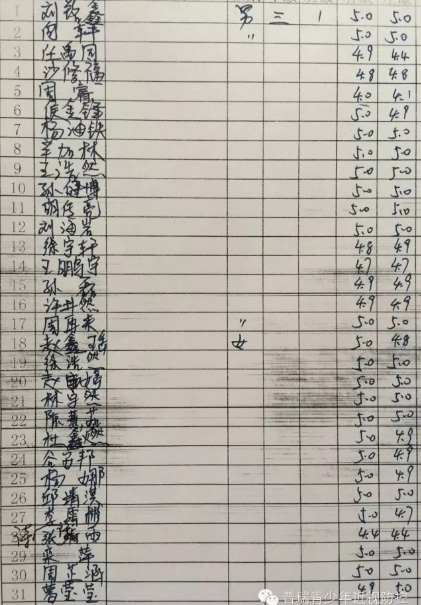 1 刘 鑫 男 三 1 5.0 5.0
2 周 轩 〃 5.0 5.0
3 任禹同 4.9 4.4
4 沙修福 4.8 4.8
5 周睿 4.0 4.1
6 侯金锋 5.0 4.9
7 杨油铁 5.0 5.0
8 羊加林 5.0 5.0
9 王浩然 5.0 5.0
10 孙健博 5.0 5.0
11 胡传亮 5.0 5.0
12 刘海岩 5.0 5.0
13 徐宇轩 4.8 4.9
14 王鹏宇 4.7 4.7
15 孙 4.9 4.9
16 许井然 4.9 4.9
17 周再来 〃 5.0 5.0
18 赵鑫瑶 女 5.0 4.8
19 徐浩然 5.0 5.0
20 赵 5.0 5.0
21 林宇 5.0 5.0
22 陈慧 5.0 5.0
23 杜鑫 5.0 4.9
24 邦 5.0 4.9
25 杨 娜 5.0 4.9
26 邱靖淇 5.0 5.0
27 李 5.0 4.7
28 张 雨 4.4 4.4
29 萍 5.0 5.0
30 周芷涵 5.0 5.0
31 莹莹 4.9 5.0
普瑞青少年近视防控